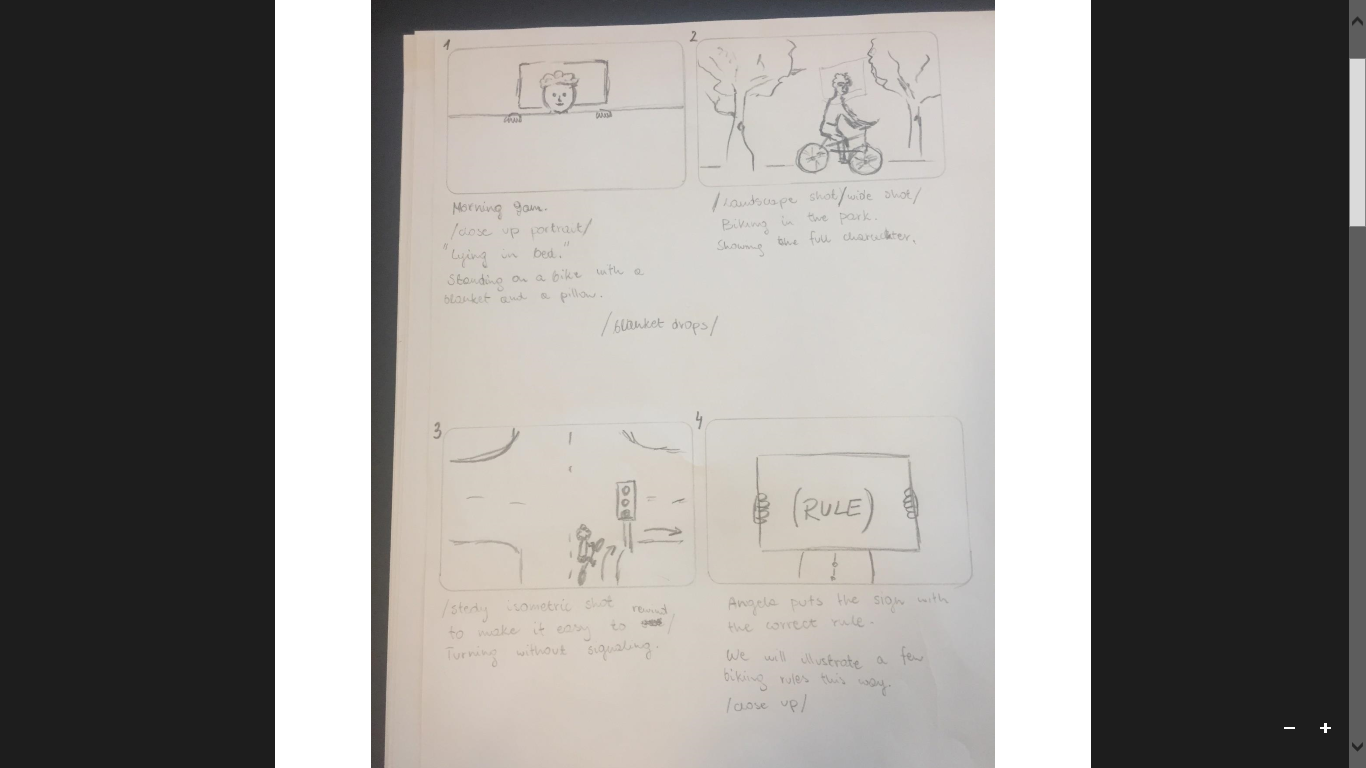 1
Morning 9am.
/close up portrait/
"Lying in bed."
Standing on a bike with a
blanket and a pillow.
2
/Landscape shot/wide shot/
Biking in the park.
Showing the full character.
/blanket drops/
3
/stedy isometric shot
to make it easy to
Turning without signaling.
4
(RULE)
Angela puts the sign with
the correct rule.
We will illustrate a few
biking rules this way.
/close up/